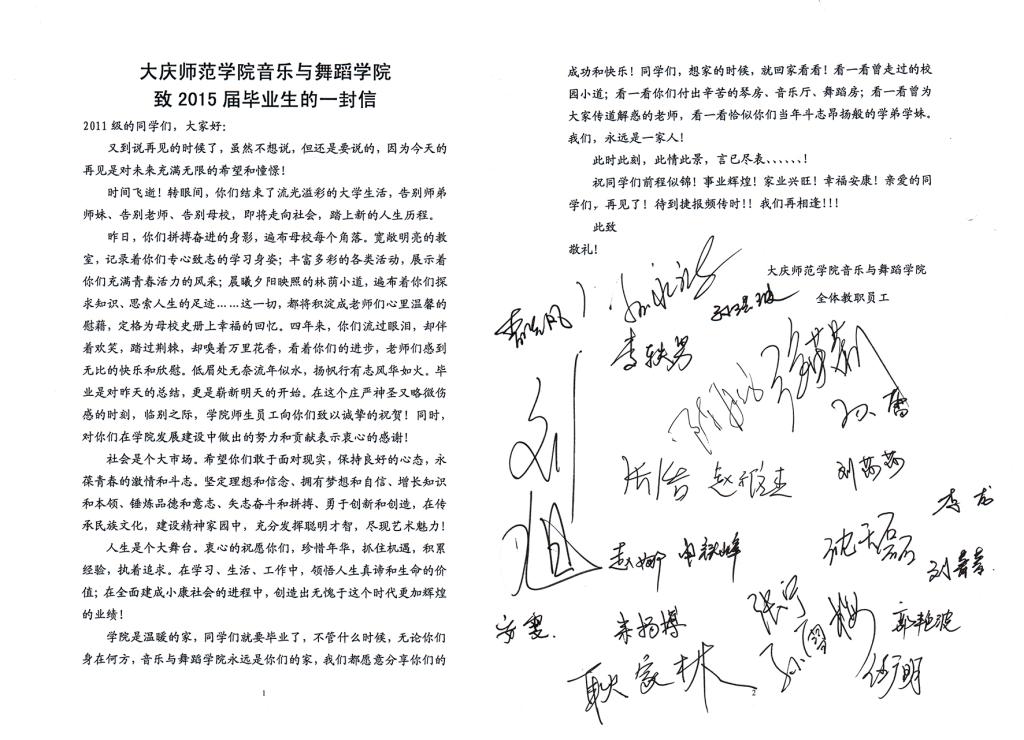 大庆师范学院音乐与舞蹈学院
致 2015 届毕业生的一封信
2011 级的同学们，大家好：
又到说再见的时候了，虽然不想说，但还是要说的，因为今天的
再见是对未来充满无限的希望和憧憬！
时间飞逝！转眼间，你们结束了流光溢彩的大学生活，告别师弟
师妹、告别老师、告别母校，即将走向社会，踏上新的人生历程。
昨日，你们拼搏奋进的身影，遍布母校每个角落。宽敞明亮的教
室，记录着你们专心致志的学习身姿；丰富多彩的各类活动，展示着
你们充满青春活力的风采；晨曦夕阳映照的林荫小道，遍布着你们探
求知识、思索人生的足迹……这一切，都将积淀成老师们心里温馨的
慰藉，定格为母校史册上幸福的回忆。四年来，你们流过眼泪，却伴
着欢笑，踏过荆棘，却唤着万里花香，看着你们的进步，老师们感到
无比的快乐和欣慰。低眉处无奈流年似水，扬帆行有志风华如火。毕
业是对昨天的总结，更是崭新明天的开始。在这个庄严神圣又略微伤
感的时刻，临别之际，学院师生员工向你们致以诚挚的祝贺！同时，
对你们在学院发展建设中做出的努力和贡献表示衷心的感谢！
社会是个大市场。希望你们敢于面对现实，保持良好的心态，永
葆青春的激情和斗志。坚定理想和信念、拥有梦想和自信、增长知识
和本领、锤炼品德和意志、矢志奋斗和拼搏、勇于创新和创造，在传
承民族文化，建设精神家园中，充分发挥聪明才智，尽现艺术魅力！
人生是个大舞台。衷心的祝愿你们，珍惜年华，抓住机遇，积累
经验，执着追求。在学习、生活、工作中，领悟人生真谛和生命的价
值；在全面建成小康社会的进程中，创造出无愧于这个时代更加辉煌
的业绩！
学院是温暖的家，同学们就要毕业了，不管什么时候，无论你们
身在何方，音乐与舞蹈学院永远是你们的家，我们都愿意分享你们的
1
成功和快乐！同学们，想家的时候，就回家看看！看一看曾走过的校
园小道；看一看你们付出辛苦的琴房、音乐厅、舞蹈房；看一看曾为
大家传道解惑的老师，看一看恰似你们当年斗志昂扬般的学弟学妹。
我们，永远是一家人！
此时此刻，此情此景，言已尽表、、、、、、！
祝同学们前程似锦！事业辉煌！家业兴旺！幸福安康！亲爱的同
学们，再见了！待到捷报频传时！！我们再相逢！！！
此致
敬礼！
大庆师范学院音乐与舞蹈学院
全体教职员工
李轶男
刘旭
孙蕾
赵雅圭
刘莎莎
李龙
赵娜
申铁峰
沈天磊
刘菁菁
安雯.
朱杨博
张宁
郭艳波
耿家林
2